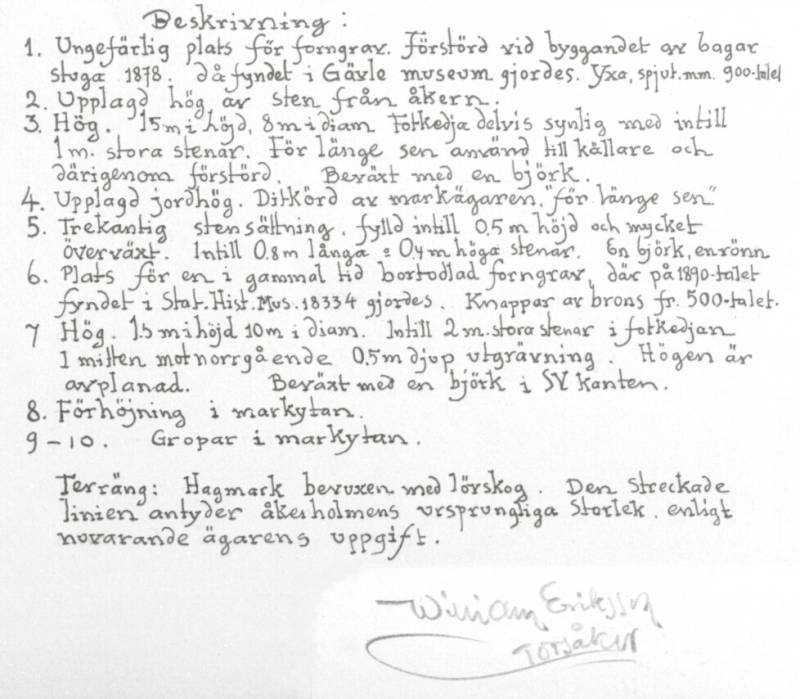 Beskrivning :
1. Ungefärlig plats för forngrav. Förstörd vid byggandet av bagar
stuga 1878. då fyndet i Gävle museum gjordes. Yxa, spjut. mm. 900-talet
2. Upplagd hög av sten från åkern.
3. Hög. 1.5 m i höjd, 8 m i diam Fotkedja delvis synlig med intill
1 m. stora stenar. För länge sen använd till källare och
därigenom förstörd. Beväxt med en björk.
4. Upplagd jordhög. Ditkörd av markägaren, "för länge sen"
5. Trekantig stensättning, fylld intill 0,5 m höjd och mycket
överväxt. Intill 0.8 m långa o 0,4 m höga stenar. En björk, en rönn
6. Plats för en i gammal tid bortodlad forngrav, där på 1890-talet
fyndet i Stat. Hist. Mus. 18334 gjordes. Knappar av brons fr. 500-talet.
7 Hög. 1.5 m i höjd 10 m i diam. Intill 2 m. stora stenar i fotkedjan
I mitten mot norr gående 0.5 m djup utgrävning. Högen är
avplanad. Beväxt med en björk i SV kanten.
8. Förhöjning i markytan.
9-10. Gropar i markytan.
Terräng: Hagmark bevuxen med lövskog. Den streckade
linien antyder åkerholmens ursprungliga storlek. enligt
nuvarande ägarens uppgift.
William Eriksson
Torsåker